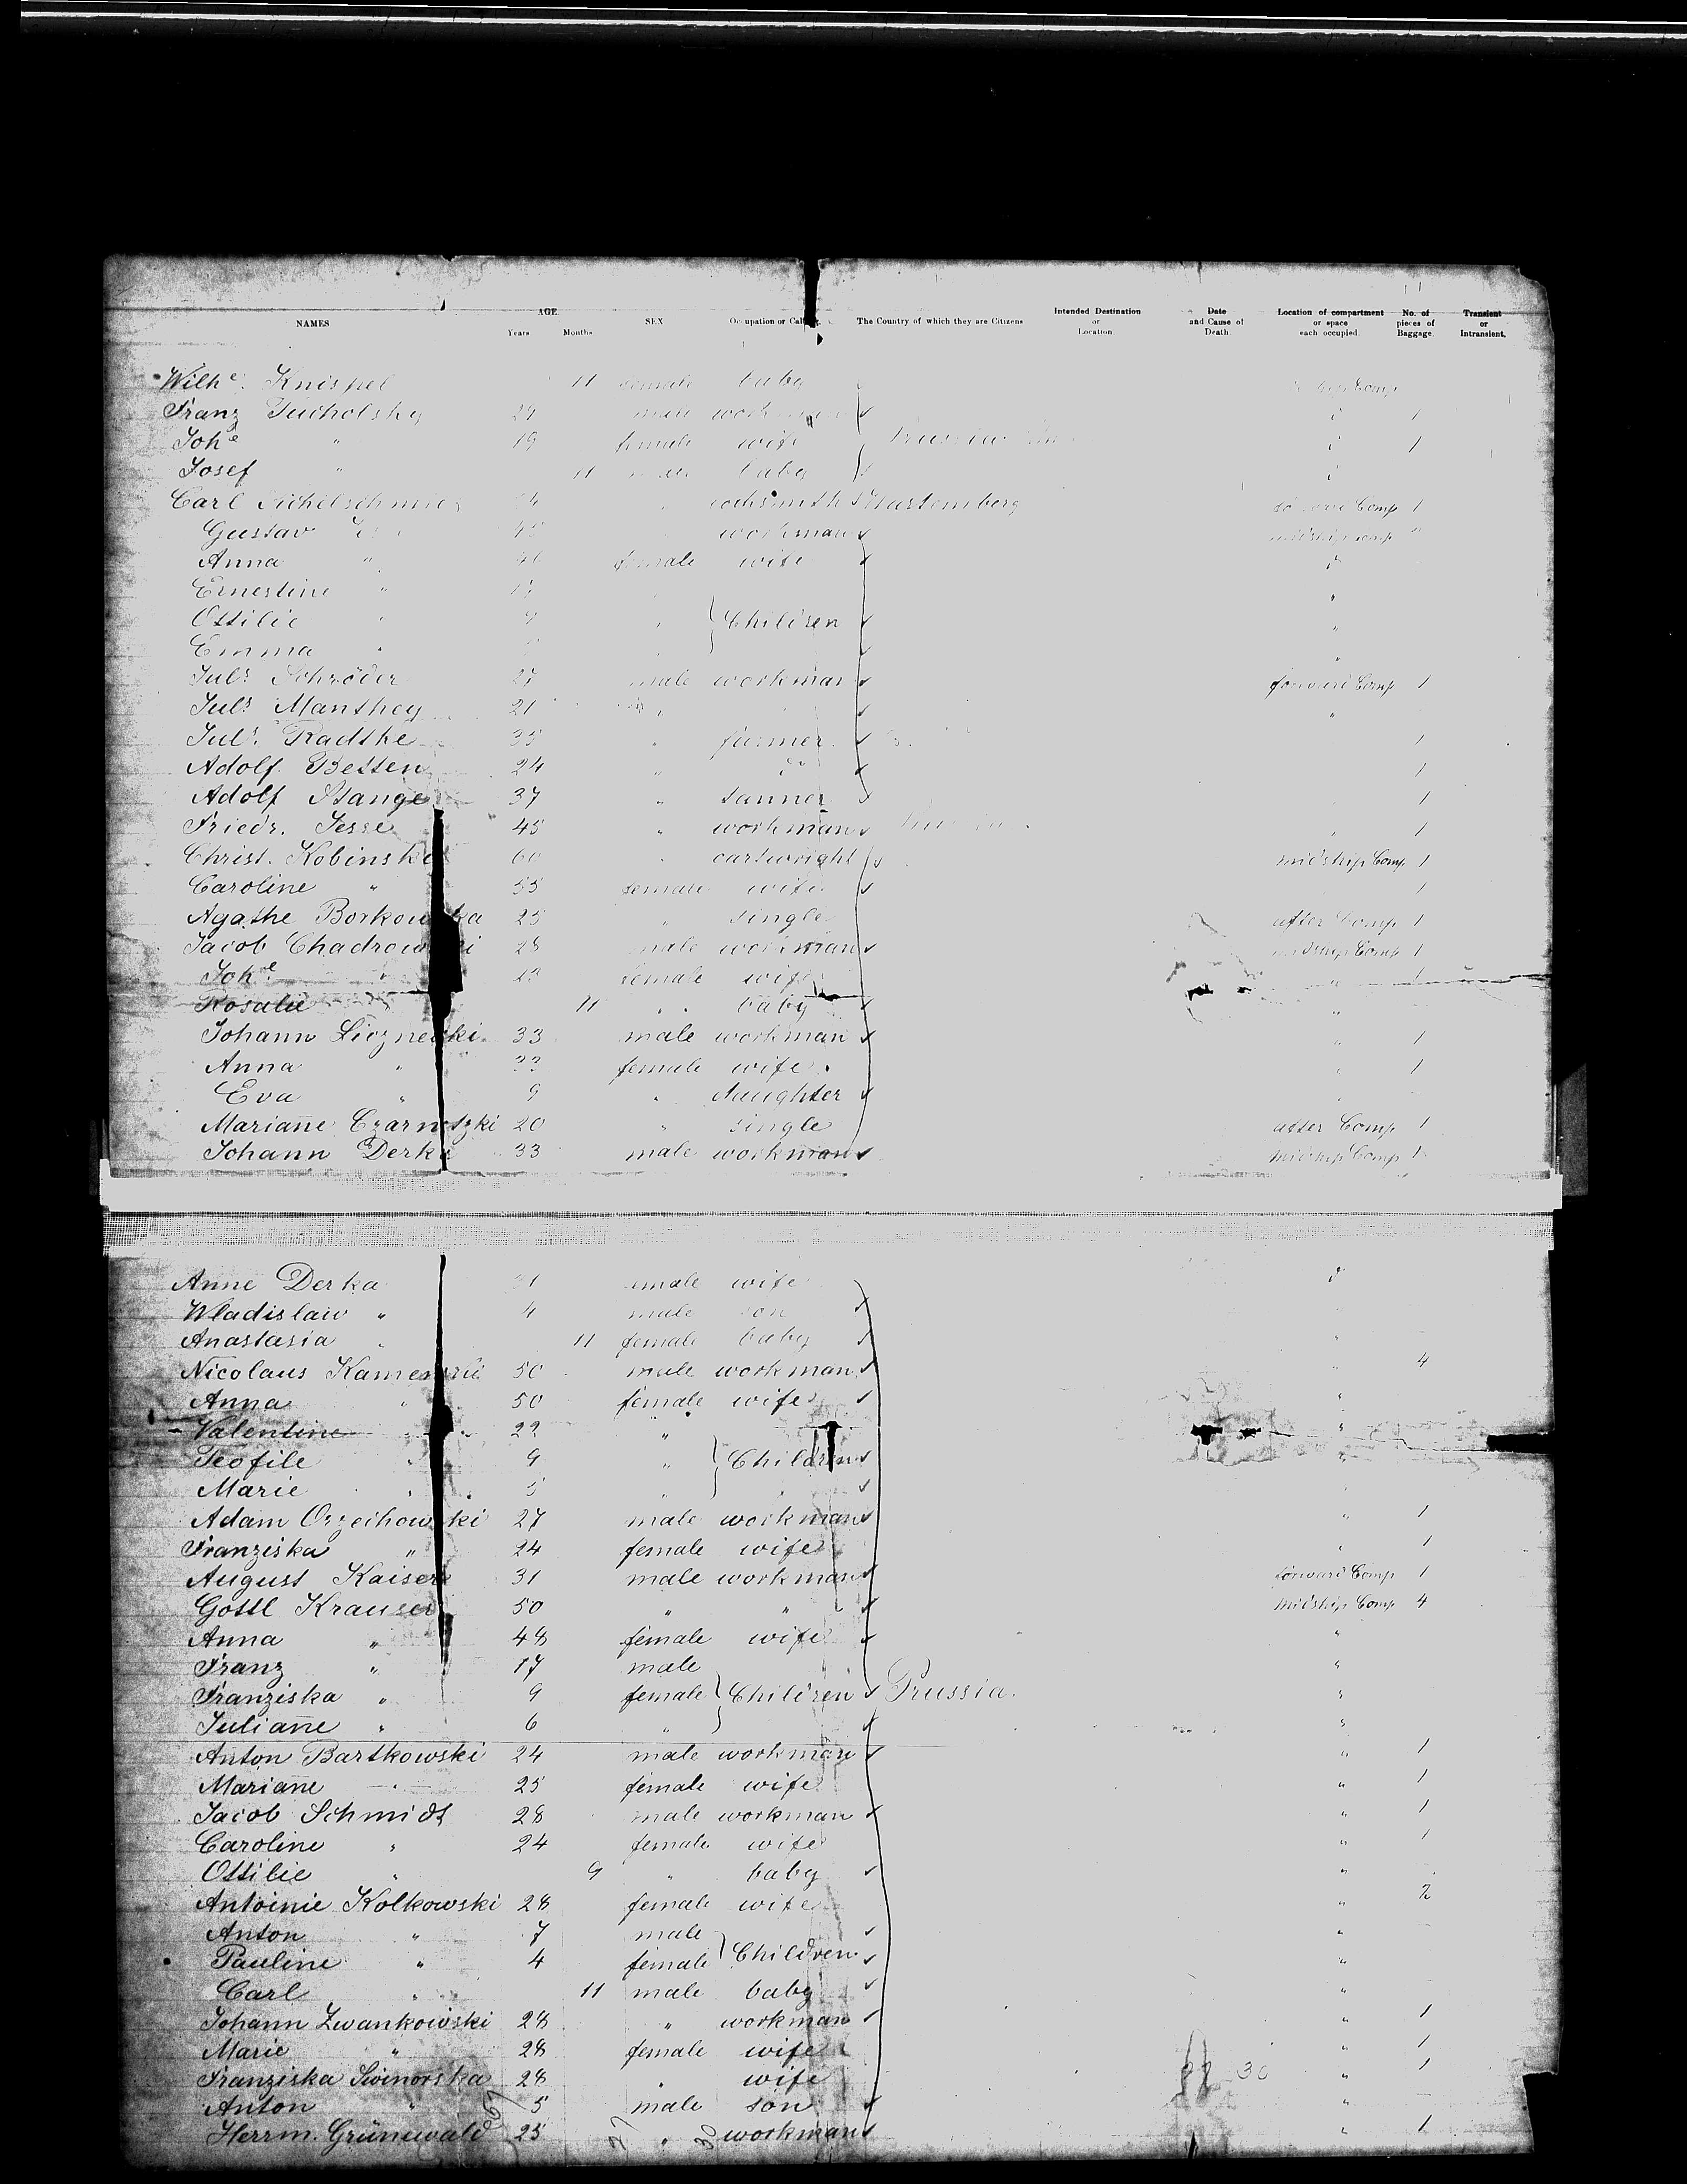 NAMES AGE Years Months SEX Occupation or The Country of which they are Citizens Intended Destination or Location. Date and Cause of Death Location of compartment or space each occupied. No. of pieces of Baggage. Transient or Intransient.
Wilhe. Knispel 11 female baby Comp
Franz Tucholsky 29 male d 1
Johe " 19 female wife Prussia d 1
Josef " 11 baby d
Carl Wurtemberg Comp 1
Gustav workman midship Comp
Anna " female wife d
Ernestine " "
Ottilie " 9 " Children "
Emma " " "
Juls Schröder 27 male workman forward Comp 1
Juls Manthey 21 " "
Juls. Radtke 35 " farmer 1
Adolf Betten 24 " do 1
Adolf Stange 37 " tanner 1
Friedr. Jesse 45 " workman " 1
Christ. Kobinski 60 " cartwright midship Comp 1
Caroline " 55 female wife 1
Agathe Borkowska 25 " single after Comp 1
Jacob Chadrowski 28 male workman midship Comp 1
Johe " female wife " 1
Rosalie 11 " baby "
Johann Liczneski 33 male workman " 1
Anna " 33 female wife " 1
Eva " 9 " daughter "
Mariañe Czarnetzki 20 " single after Comp 1
Johann Derka 33 male workman midship Comp 1
Anne Derka 31 female wife d
Wladislaw " 4 male son
Anastasia " 11 female baby "
Nicolaus 50 male workman " 4
Anna " 50 female wife "
Valentine " 22 " "
Teofile " 9 " Children "
Marie " 5 " "
Adam Orzechowski 27 male workman " 1
Franziska " 24 female wife " 1
August Kaiser 31 male workman forward Comp 1
Gottl Krauser 50 " " midship Comp 4
Anna " 48 female wife "
Franz " 17 male "
Franziska " 9 female Children Prussia. "
Juliañe " 6 " "
Anton Bartkowski 24 male workman " 1
Mariañe " 25 female wife " 1
Jacob Schmidt 28 male workman " 1
Caroline " 24 female wife " 1
Ottilie " 9 " baby "
Antoinie Kolkowski 28 female wife " 2
Anton " 7 male "
Pauline " 4 female Children "
Carl " 11 male baby "
Johann Zwankowski 28 " workman " 1
Marie " 28 female wife " 1
Franziska Swinorska 28 " wife " 1
Anton " 5 male son "
Herrm. Grünwald 25 " workman " 1